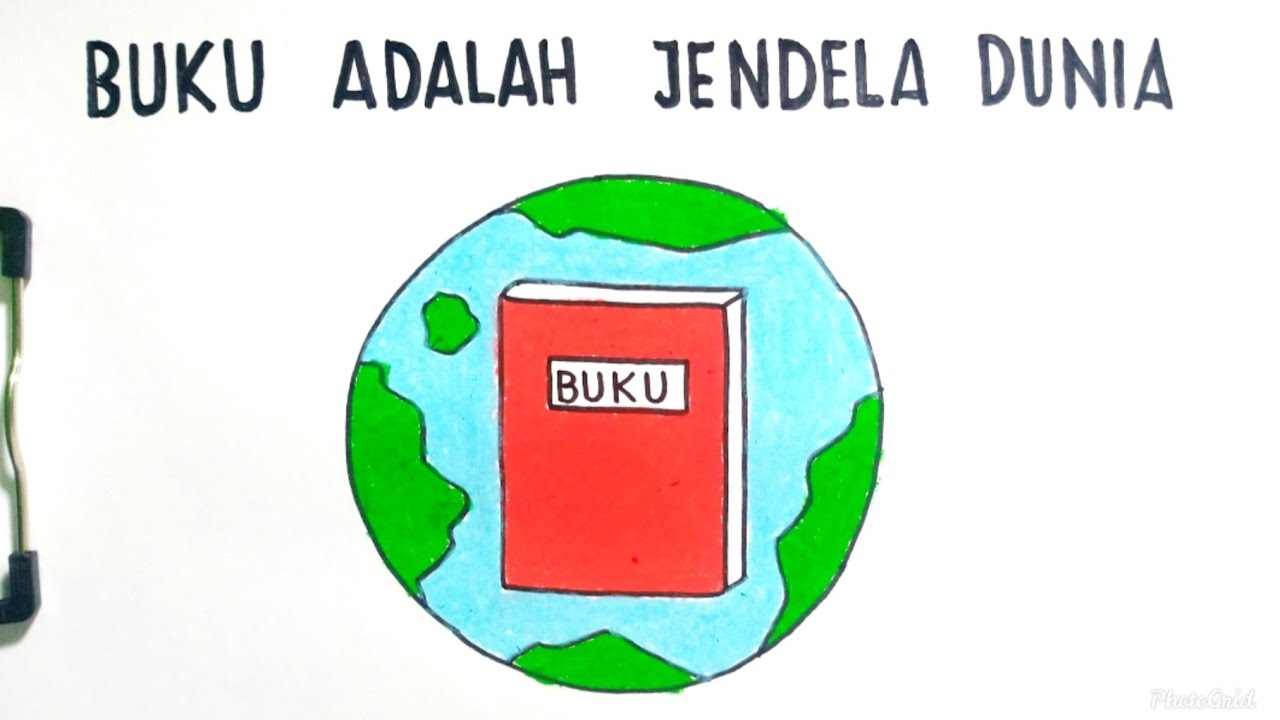 BUKU ADALAH JENDELA DUNIA
BUKU
PhotoGrid